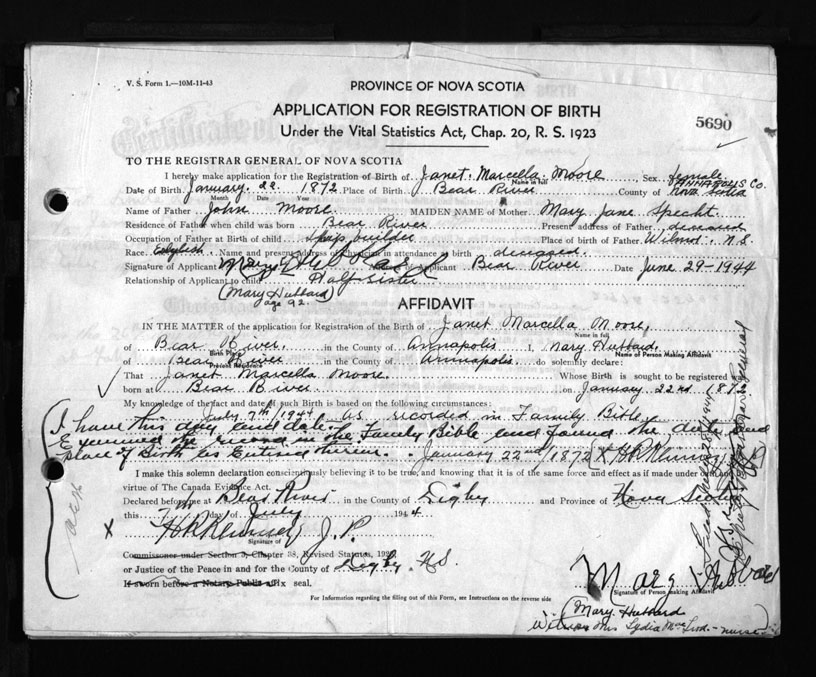 V. S. Form 1.—10M-11-43
PROVINCE OF NOVA SCOTIA
APPLICATION FOR REGISTRATION OF BIRTH
5690
Under the Vital Statistics Act, Chap. 20, R. S. 1923
TO THE REGISTRAR GENERAL OF NOVA SCOTIA
I hereby make application for the Registration of Birth of Janet Marcella Moore Sex female
Name in full
ANNAPOLIS CO.
Date of Birth January 22 1872 Place of Birth Bear River County of Nova Scotia
Month Date Year
Name of Father John Moore MAIDEN NAME of Mother Mary Jane Specht
Residence of Father when child was born Bear River Present address of Father deceased
Occupation of Father at Birth of child Ship builder Place of birth of Father Wilmot. N.S.
Race English Name and present address of Physician in attendance at birth deceased
Signature of Applicant Applicant Bear River Date June 29-1944
Relationship of Applicant to child Half sister
(Mary Hubbard)
age 92
AFFIDAVIT
IN THE MATTER of the application for Registration of the Birth of Janet Marcella Moore,
Name in full
of Bear River, in the County of Annapolis I, Mary Hubbard,
Birth Place Name of Person Making Affidavit
of Bear River in the County of Annapolis do solemnly declare:
Present Residence
That Janet Marcella Moore Whose Birth is sought to be registered was
born at Bear River on January 22nd 1872
My knowledge of the fact and date of such Birth is based on the following circumstances:
July 7th/1944 as recorded in Family Bible
I have this day and date
Examined the record in the Family Bible and found the date and
place of Birth as Entered therein. January 22nd/1872
I make this solemn declaration conscientiously believing it to be true, and knowing that it is of the same force and effect as if made under oath
virtue of The Canada Evidence Act.
Declared before me at Bear River in the County of Digby and Province of Nova Scotia
this 7th day of July 1944
X J. P.
Signature of
Commissoner under Section 3, Chapter 38, Revised Statutes, 192
or Justice of the Peace in and for the County of Digby N.S.
If sworn before a Notary Public affix seal.
Mary Hubbard
Signature of Person making Affidavit
For Information regarding the filling out of this Form, see Instructions on the reverse side
(Mary Hubbard
Witness Mrs Lydia - nurse